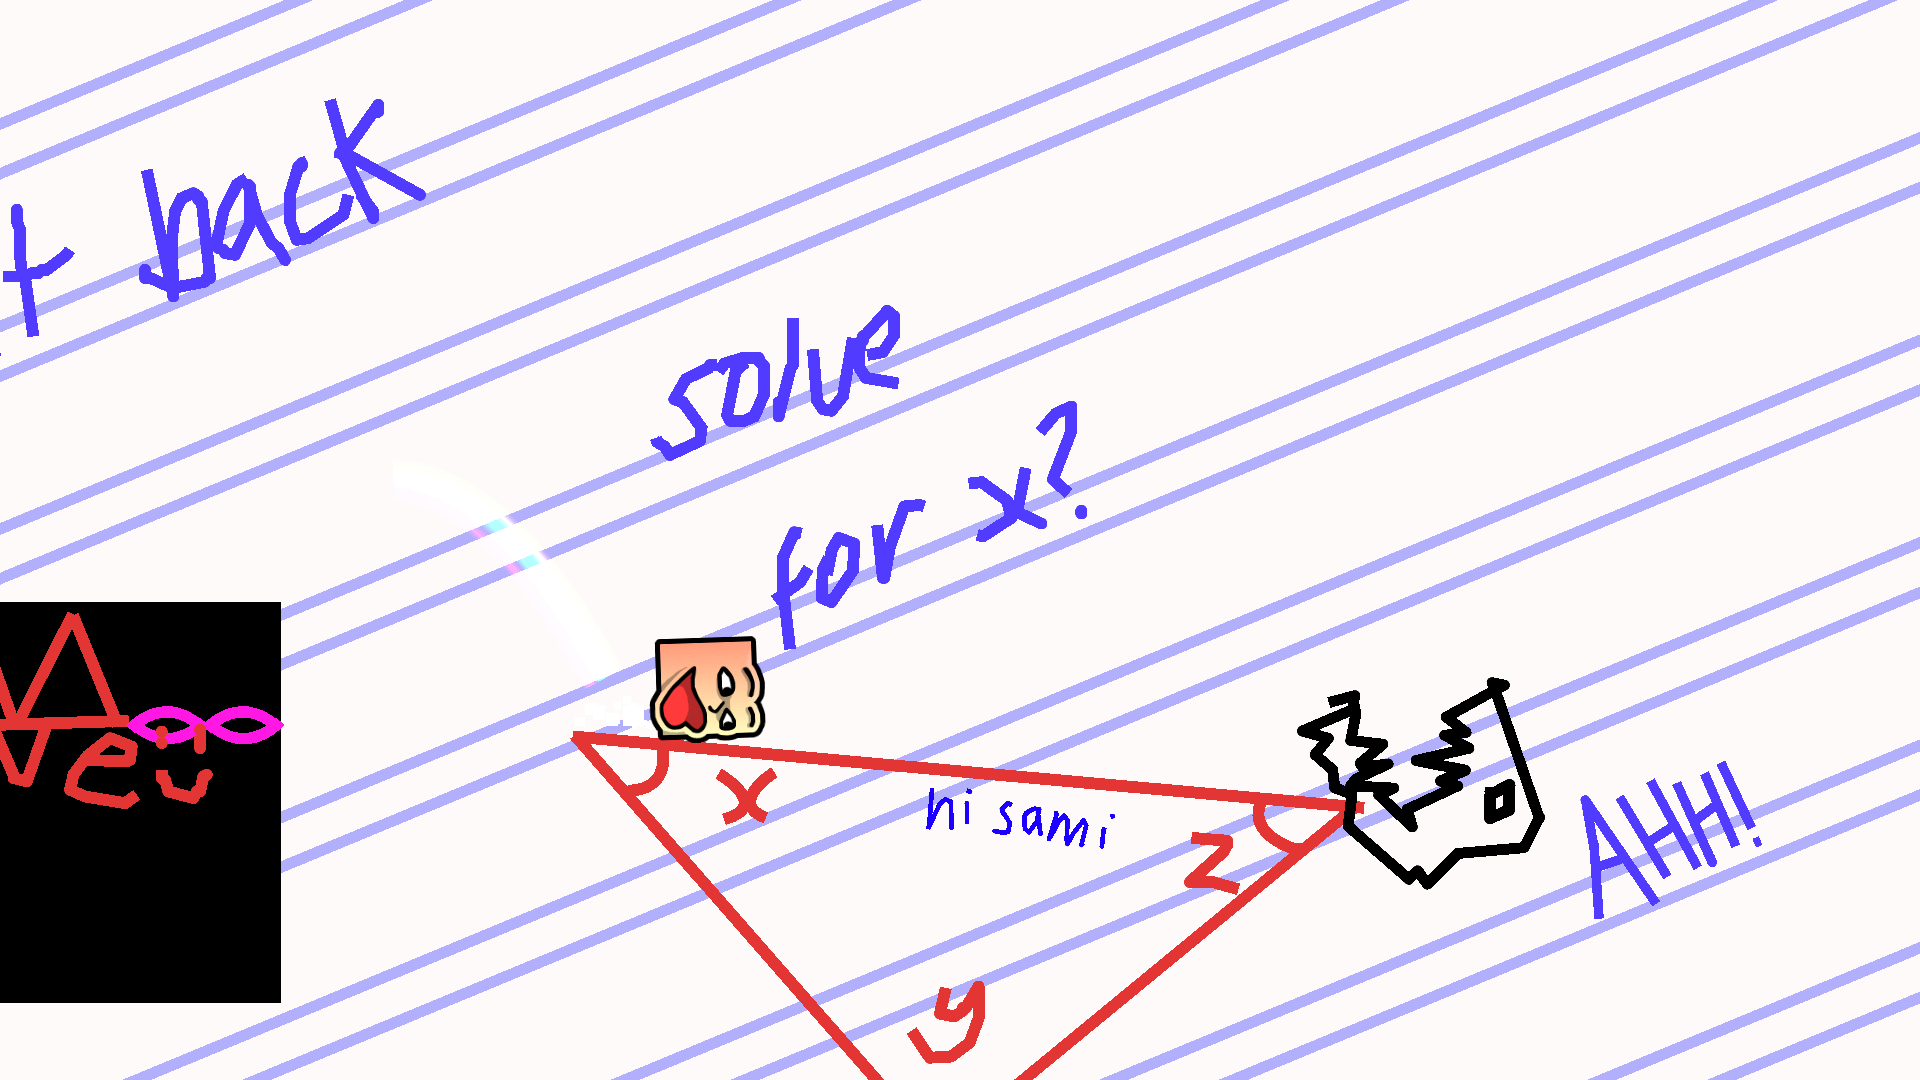 t back
solve
for x?
x
hi sami
z
y
AHH!